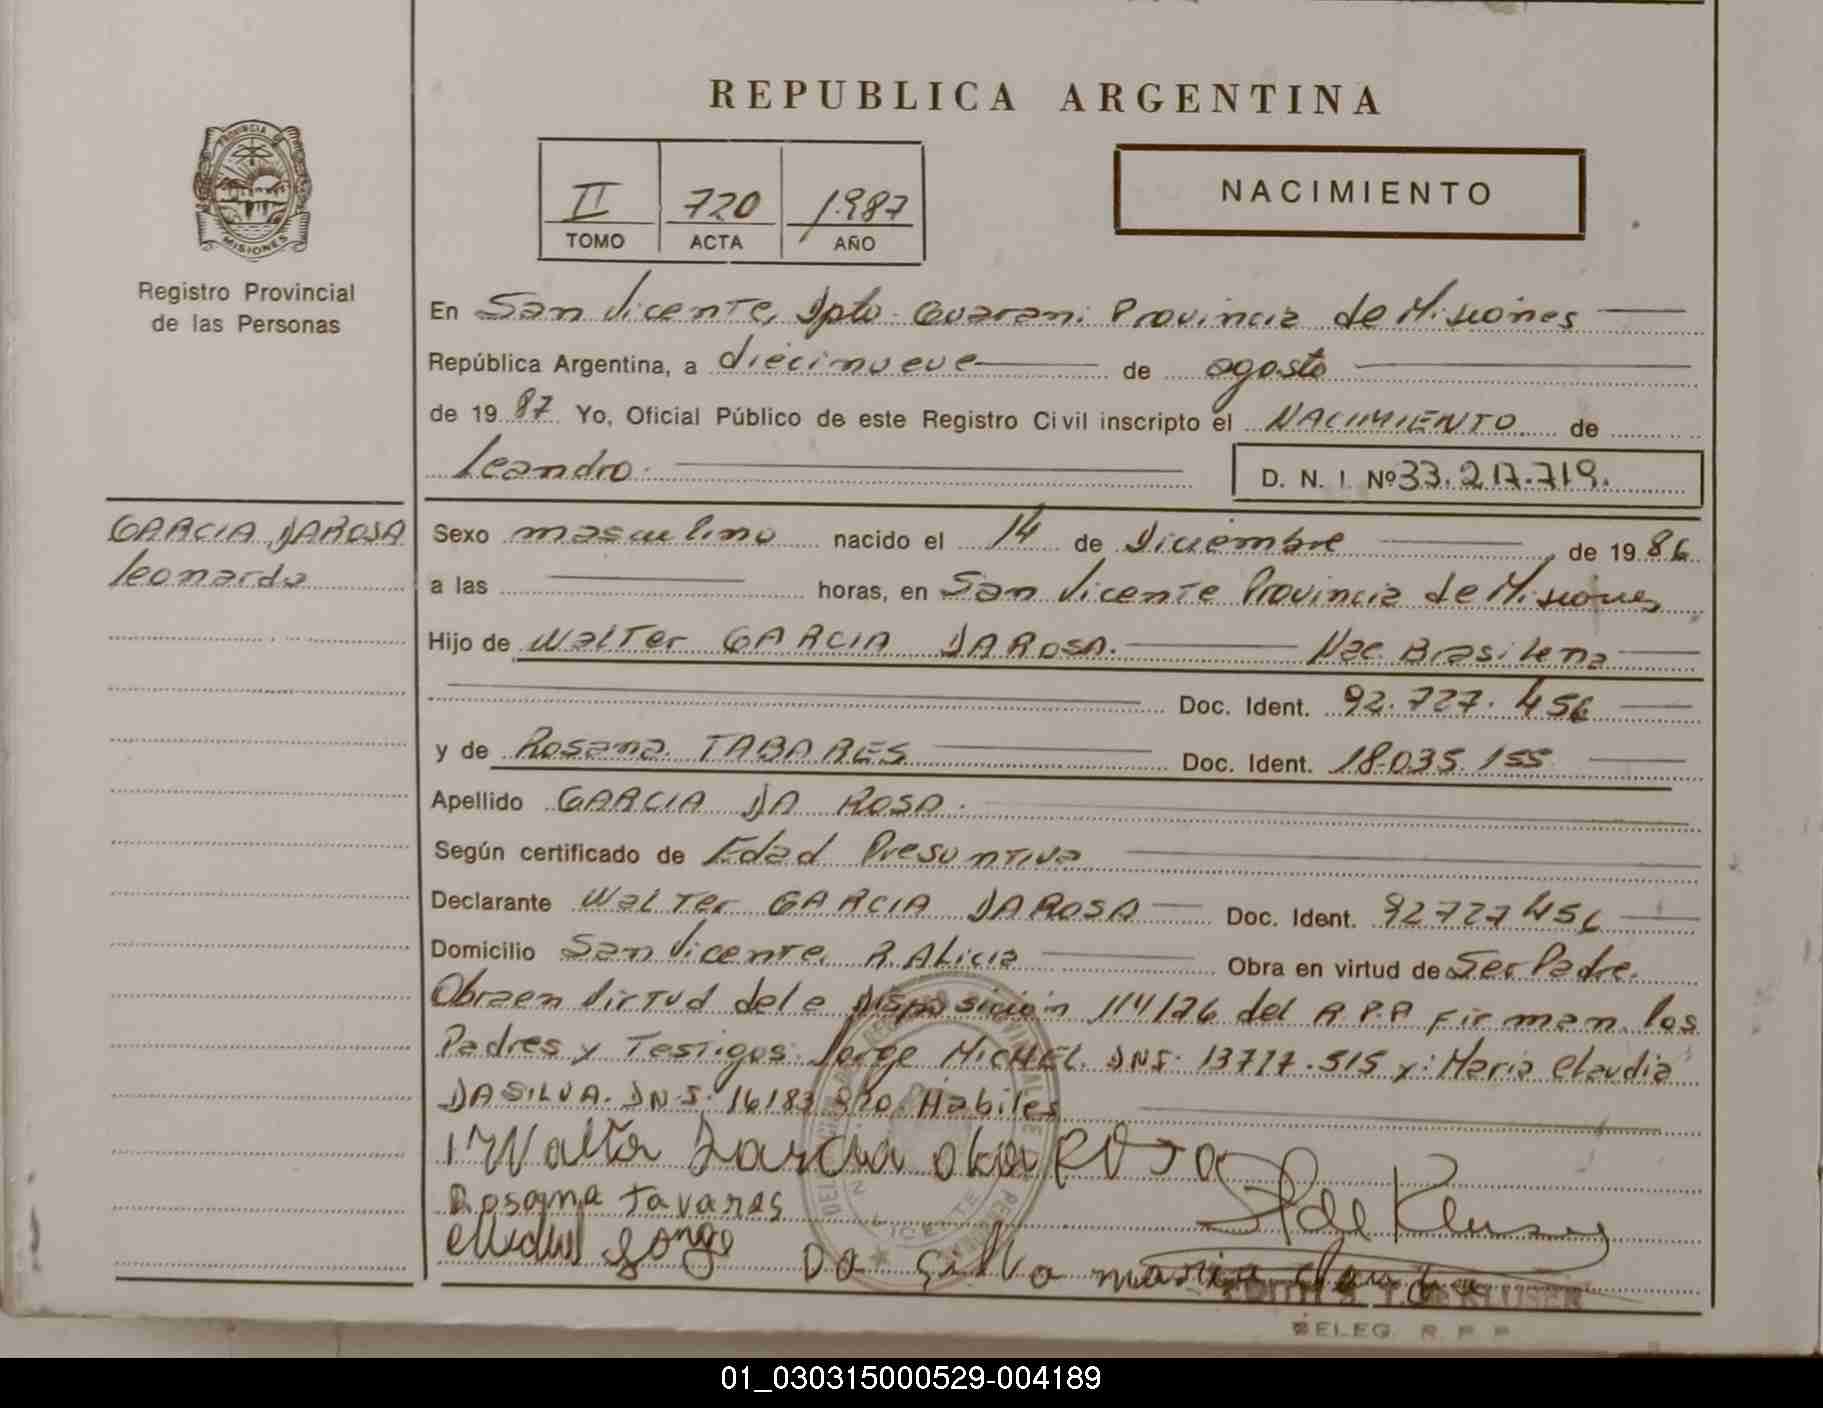 REPUBLICA ARGENTINA
II 720 1987
TOMO ACTA AÑO
NACIMIENTO
PROVINCIA DE
MISIONES
Registro Provincial
de las Personas
En San Vicente, Dpto. Guarani Provincia de Misiones
República Argentina, a diecinueve de agosto
de 1987 Yo, Oficial Público de este Registro Civil inscripto el NACIMIENTO de
Leandro.
D. N. I. Nº 33.217.719.
GARCIA DAROSA
Leonardo
Sexo masculino nacido el 14 de Diciembre de 1986
a las horas, en San Vicente Provincia de Misiones
Hijo de Walter GARCIA DAROSA. Nac. Brasilena
Doc. Ident. 92.727.456
y de Rosana TABARES Doc. Ident. 18.035.155
Apellido GARCIA DA ROSA.
Según certificado de Edad Presuntiva
Declarante Walter GARCIA DAROSA Doc. Ident. 92727456
Domicilio San Vicente, R. Alicia Obra en virtud de Ser Padre.
Obra en Virtud de le Disposición 114/76 del R.P.P Firman los
Padres y Testigos: Jorge MICHEL. DNI: 13717.515 y: Maria Claudia
DA SILVA. DNI: 16183 Habiles
Walter Garcia da Rosa
Rosana tavares
Michel Jorge Da Silva maria
DE KLUSER
DELEG. R. P. P.
01_030315000529-004189